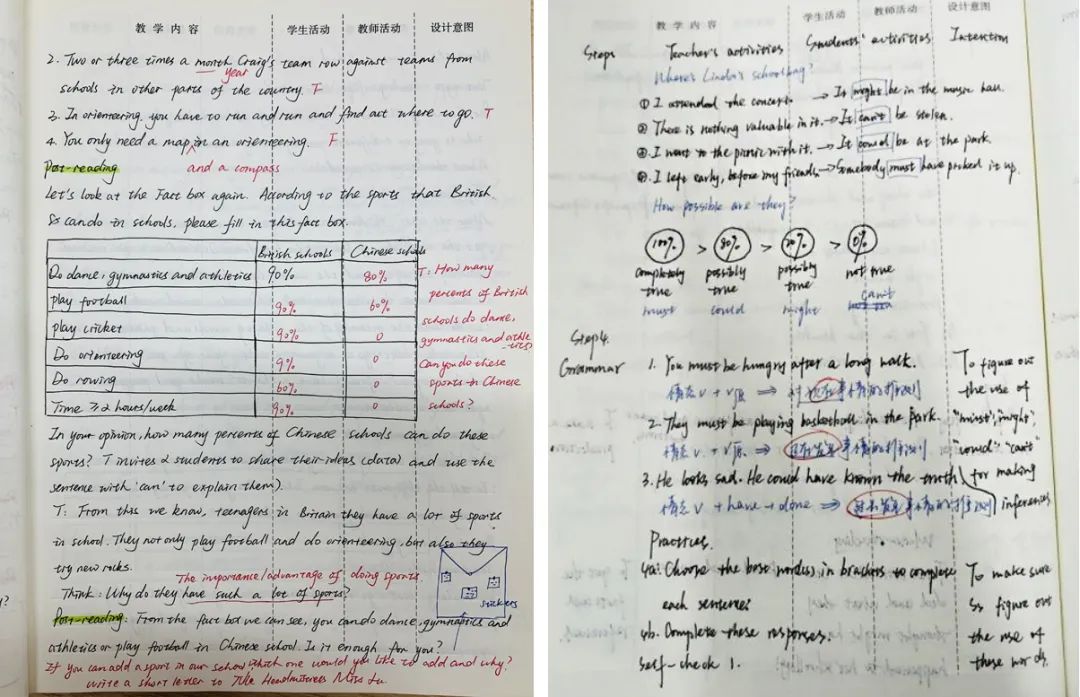 教 学 内 容 学生活动 教师活动 设计意图
2. Two or three times a month Craig's team row against teams from
year
schools in other parts of the country. F
3. In orienteering, you have to run and run and find act where to go. T
4. You only need a map in an orienteering. F
Post-reading and a compass
Let's look at the Fact box again. According to the sports that British
Ss can do in schools, please fill in this fact box.
British schools Chinese schools
Do dance, gymnastics and athletics 90% 80%
play football 90% 60%
play cricket 90% 0
Do orienteering 9% 0
Do rowing 60% 0
Time ≥ 2 hours/week 90% 0
T: How many
percents of British
schools do dance,
gymnastics and athle
-tics?
Can you do these
sports in Chinese
schools?
In your opinion, how many percents of Chinese schools can do these
sports? T invites 2 students to share their ideas (data) and use the
sentence with 'can' to explain them).
T: From this we know, teenagers in Britain they have a lot of sports
in school. They not only play football and do orienteering, but also they
try new
The importance/advantage of doing sports.
Think: Why do they have such a lot of sports?
stickers
Post-reading: From the fact box we can see, you can do dance, gymnastics and
athletics or play football in Chinese school. Is it enough for you?
If you can add a sport in our school, which one would you like to add and why?
write a short letter to The Headmistress Miss Lu.
教 学 内 容 学生活动 教师活动 设计意图
Steps Teacher's activities Students' activities Intention
Where's Linda's schoolbag?
① I attended the concert. → It might be in the music hall.
② There is nothing valuable in it. → It can't be stolen.
③ I went to the picnic with it. → It could be at the park.
④ I left early, before my friends. → Somebody must have picked it up.
How possible are they?
100% > 80% > 20% > 0%
completely true possibly true possibly true not true
must could might can't
Step4.
Grammar
1. You must be hungry after a long walk.
情态v + v原 ⇒ 对现在事情的推测
2. They must be playing basketball in the park.
情态v + v原 ⇒ 正在发生事情的推测
3. He looks sad. He could have known the truth.
情态v + have + done ⇒ 过去发生事情的推测
To figure out
the use of
"must", "might",
"could", "can't"
for making
inferences
Practices.
4a: Choose the best word(s) in brackets to complete
each sentence:
4b. Complete these responses.
self-check 1.
To make sure
Ss figure out
the use of
these words.